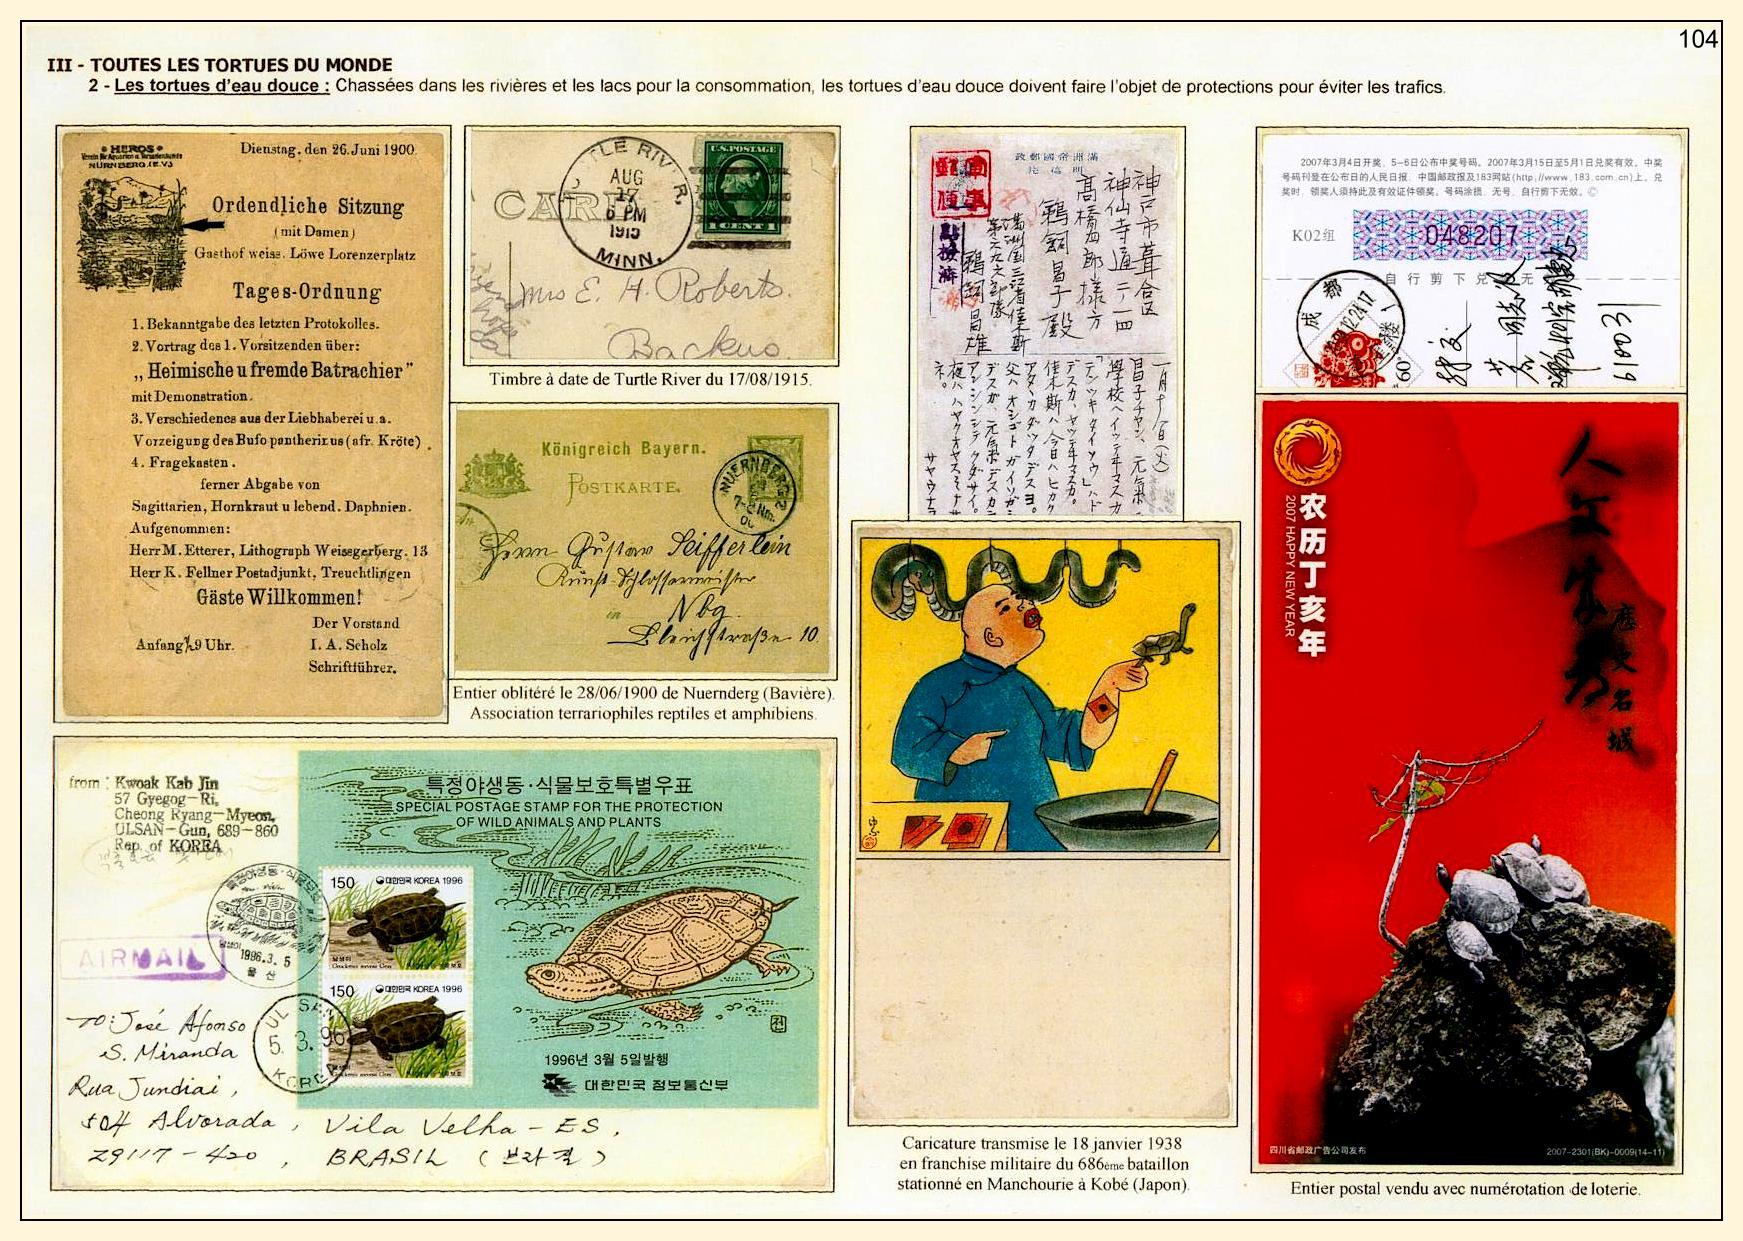 104
III - TOUTES LES TORTUES DU MONDE
2 - Les tortues d'eau douce : Chassées dans les rivières et les lacs pour la consommation, les tortues d'eau douce doivent faire l'objet de protections pour éviter les trafics.
HEROS
Verein für Aquarien u. Terrarienkunde
NÜRNBERG. (E.V.)
Dienstag, den 26. Juni 1900.
Ordendliche Sitzung
(mit Damen)
Gasthof weiss. Löwe Lorenzerplatz
Tages-Ordnung
1. Bekanntgabe des letzten Protokolles.
2. Vortrag des 1. Vorsitzenden über:
„ Heimische u fremde Batrachier”
mit Demonstration.
3. Verschiedenes aus der Liebhaberei u. a.
Vorzeigung des Bufo pantherinus (afr. Kröte) .
4. Fragekasten .
ferner Abgabe von
Sagittarien, Hornkraut u lebend. Daphnien.
Aufgenommen:
Herr M. Etterer, Lithograph Weissgerberg. 13
Herr K. Fellner Postadjunkt, Treuchtlingen
Gäste Willkommen!
Der Vorstand
Anfang ½9 Uhr.
I. A. Scholz
Schriftführer.
CARD
TLE RIV R,
AUG
17
6 PM
1915
MINN.
U.S. POSTAGE
1 CENT 1
Mrs E. H. Roberts.
Backus.
Timbre à date de Turtle River du 17/08/1915.
Königreich Bayern.
POSTKARTE.
NUERNBERG 2
7-8 Nm.
00
Herrn Gustav Seifferlein
Kunst-Schlossermeister
in Nbg
Bleichstraße 10
Entier oblitéré le 28/06/1900 de Nuernderg (Bavière).
Association terrariophiles reptiles et amphibiens.
満洲帝國郵政
軍事
郵便
點検濟
神戸市葺合区
神仙寺通二ノ一四
髙橋四郎様方
鵜飼昌子殿
鵜飼昌雄
一月十八日(火)
昌子チャン、元気デ
學校ヘイッテヰマスカ
佳木斯ハ今日ハヒカク
サヤウナラ
Caricature transmise le 18 janvier 1938
en franchise militaire du 686ème bataillon
stationné en Manchourie à Kobé (Japon).
2007年3月4日开奖，5-6日公布中奖号码。2007年3月15日至5月1日兑奖有效。中奖
号码刊登在公布日的人民日报、中国邮政报及183网站(http://www.183.com.cn)上。兑
奖时，领奖人须持此及有效证件领奖。号码涂损、无号、自行剪下无效。Ⓒ
K02组
048207
自行剪下兑 无
成都
610031
农历丁亥年
2007 HAPPY NEW YEAR
人文成都
历史名城
四川省邮政广告公司发布
2007-2301(BK)-0009(14-11)
Entier postal vendu avec numérotation de loterie.
from : Kwoak Kab Jin
57 Gyegog-Ri,
Cheong Ryang-Myeon,
ULSAN-Gun, 689-860
Rep. of KOREA
AIRMAIL
1996.3.5
울산
UL SAN
5. 3. 96
KOREA
특정야생동·식물보호특별우표
SPECIAL POSTAGE STAMP FOR THE PROTECTION
OF WILD ANIMALS AND PLANTS
150 대한민국 KOREA 1996
남생이
150 대한민국 KOREA 1996
남생이
1996년 3월 5일발행
대한민국 정보통신부
TO: José Afonso
S. Miranda
Rua Jundiai,
504 Alvorada, Vila Velha - ES,
29117-420, BRASIL (브라질)